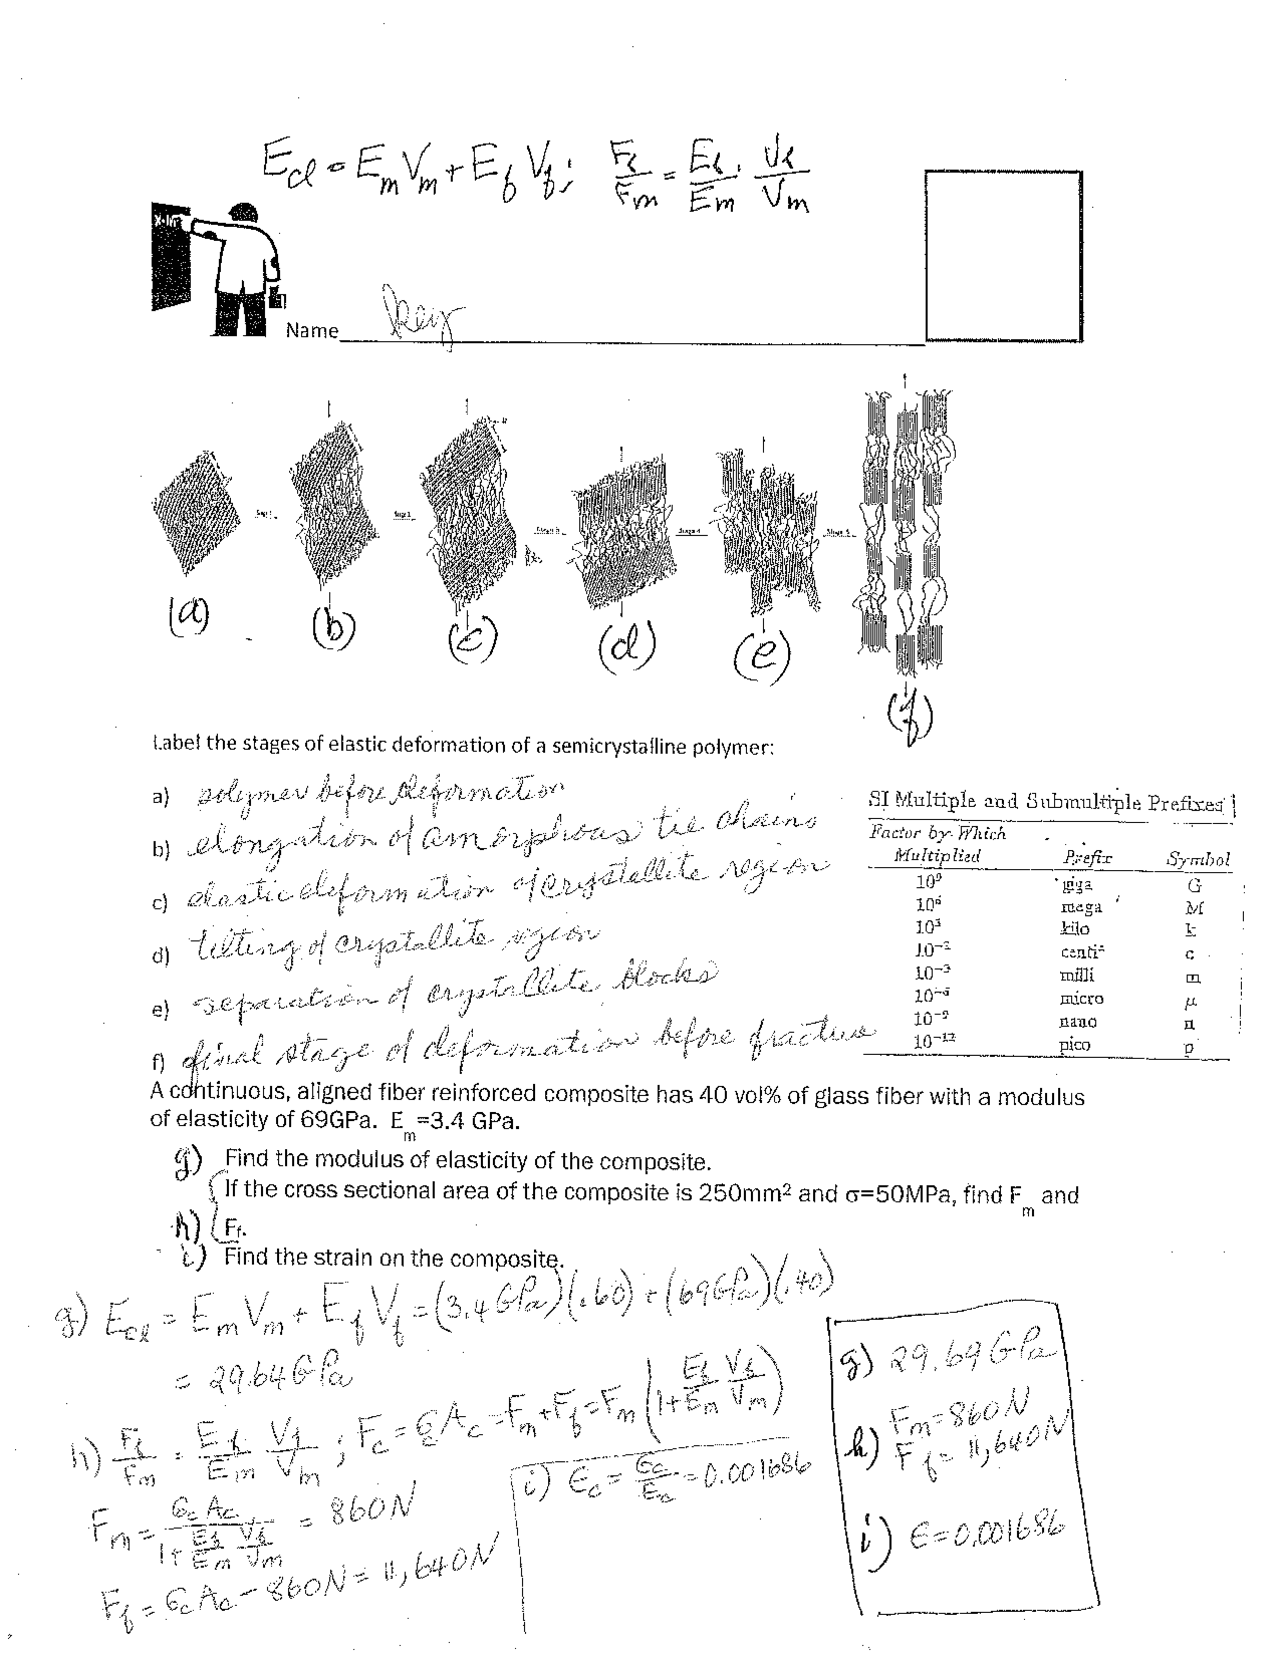 E_cl = E_m V_m + E_f V_f ; F_f/F_m = E_f/E_m · V_f/V_m
Name key
(a)
(b)
(c)
(d)
(e)
(f)
Label the stages of elastic deformation of a semicrystalline polymer:
a) polymer before deformation
b) elongation of amorphous tie chains
c) elastic deformation of crystallite region
d) tilting of crystallite region
e) separation of crystallite blocks
f) final stage of deformation before fracture
SI Multiple and Submultiple Prefixes
Factor by Which
Multiplied Prefix Symbol
10⁹ giga G
10⁶ mega M
10³ kilo k
10⁻² centi c
10⁻³ milli m
10⁻⁶ micro μ
10⁻⁹ nano n
10⁻¹² pico p
A continuous, aligned fiber reinforced composite has 40 vol% of glass fiber with a modulus
of elasticity of 69GPa. E_m=3.4 GPa.
g) Find the modulus of elasticity of the composite.
If the cross sectional area of the composite is 250mm² and σ=50MPa, find F_m and
h) F_f.
i) Find the strain on the composite.
g) E_cl = E_m V_m + E_f V_f = (3.4 GPa)(.60) + (69GPa)(.40)
= 29.64 GPa
h) F_f/F_m = E_f/E_m V_f/V_m ; F_c = σ_c A_c = F_m + F_f = F_m (1 + E_f/E_m V_f/V_m)
F_m = σ_c A_c / (1 + E_f/E_m V_f/V_m) = 860N
F_f = σ_c A_c − 860N = 11,640N
i) ε_c = σ_c/E_c = 0.001686
g) 29.69 GPa
h) F_m = 860N
F_f = 11,640N
i) ε = 0.001686